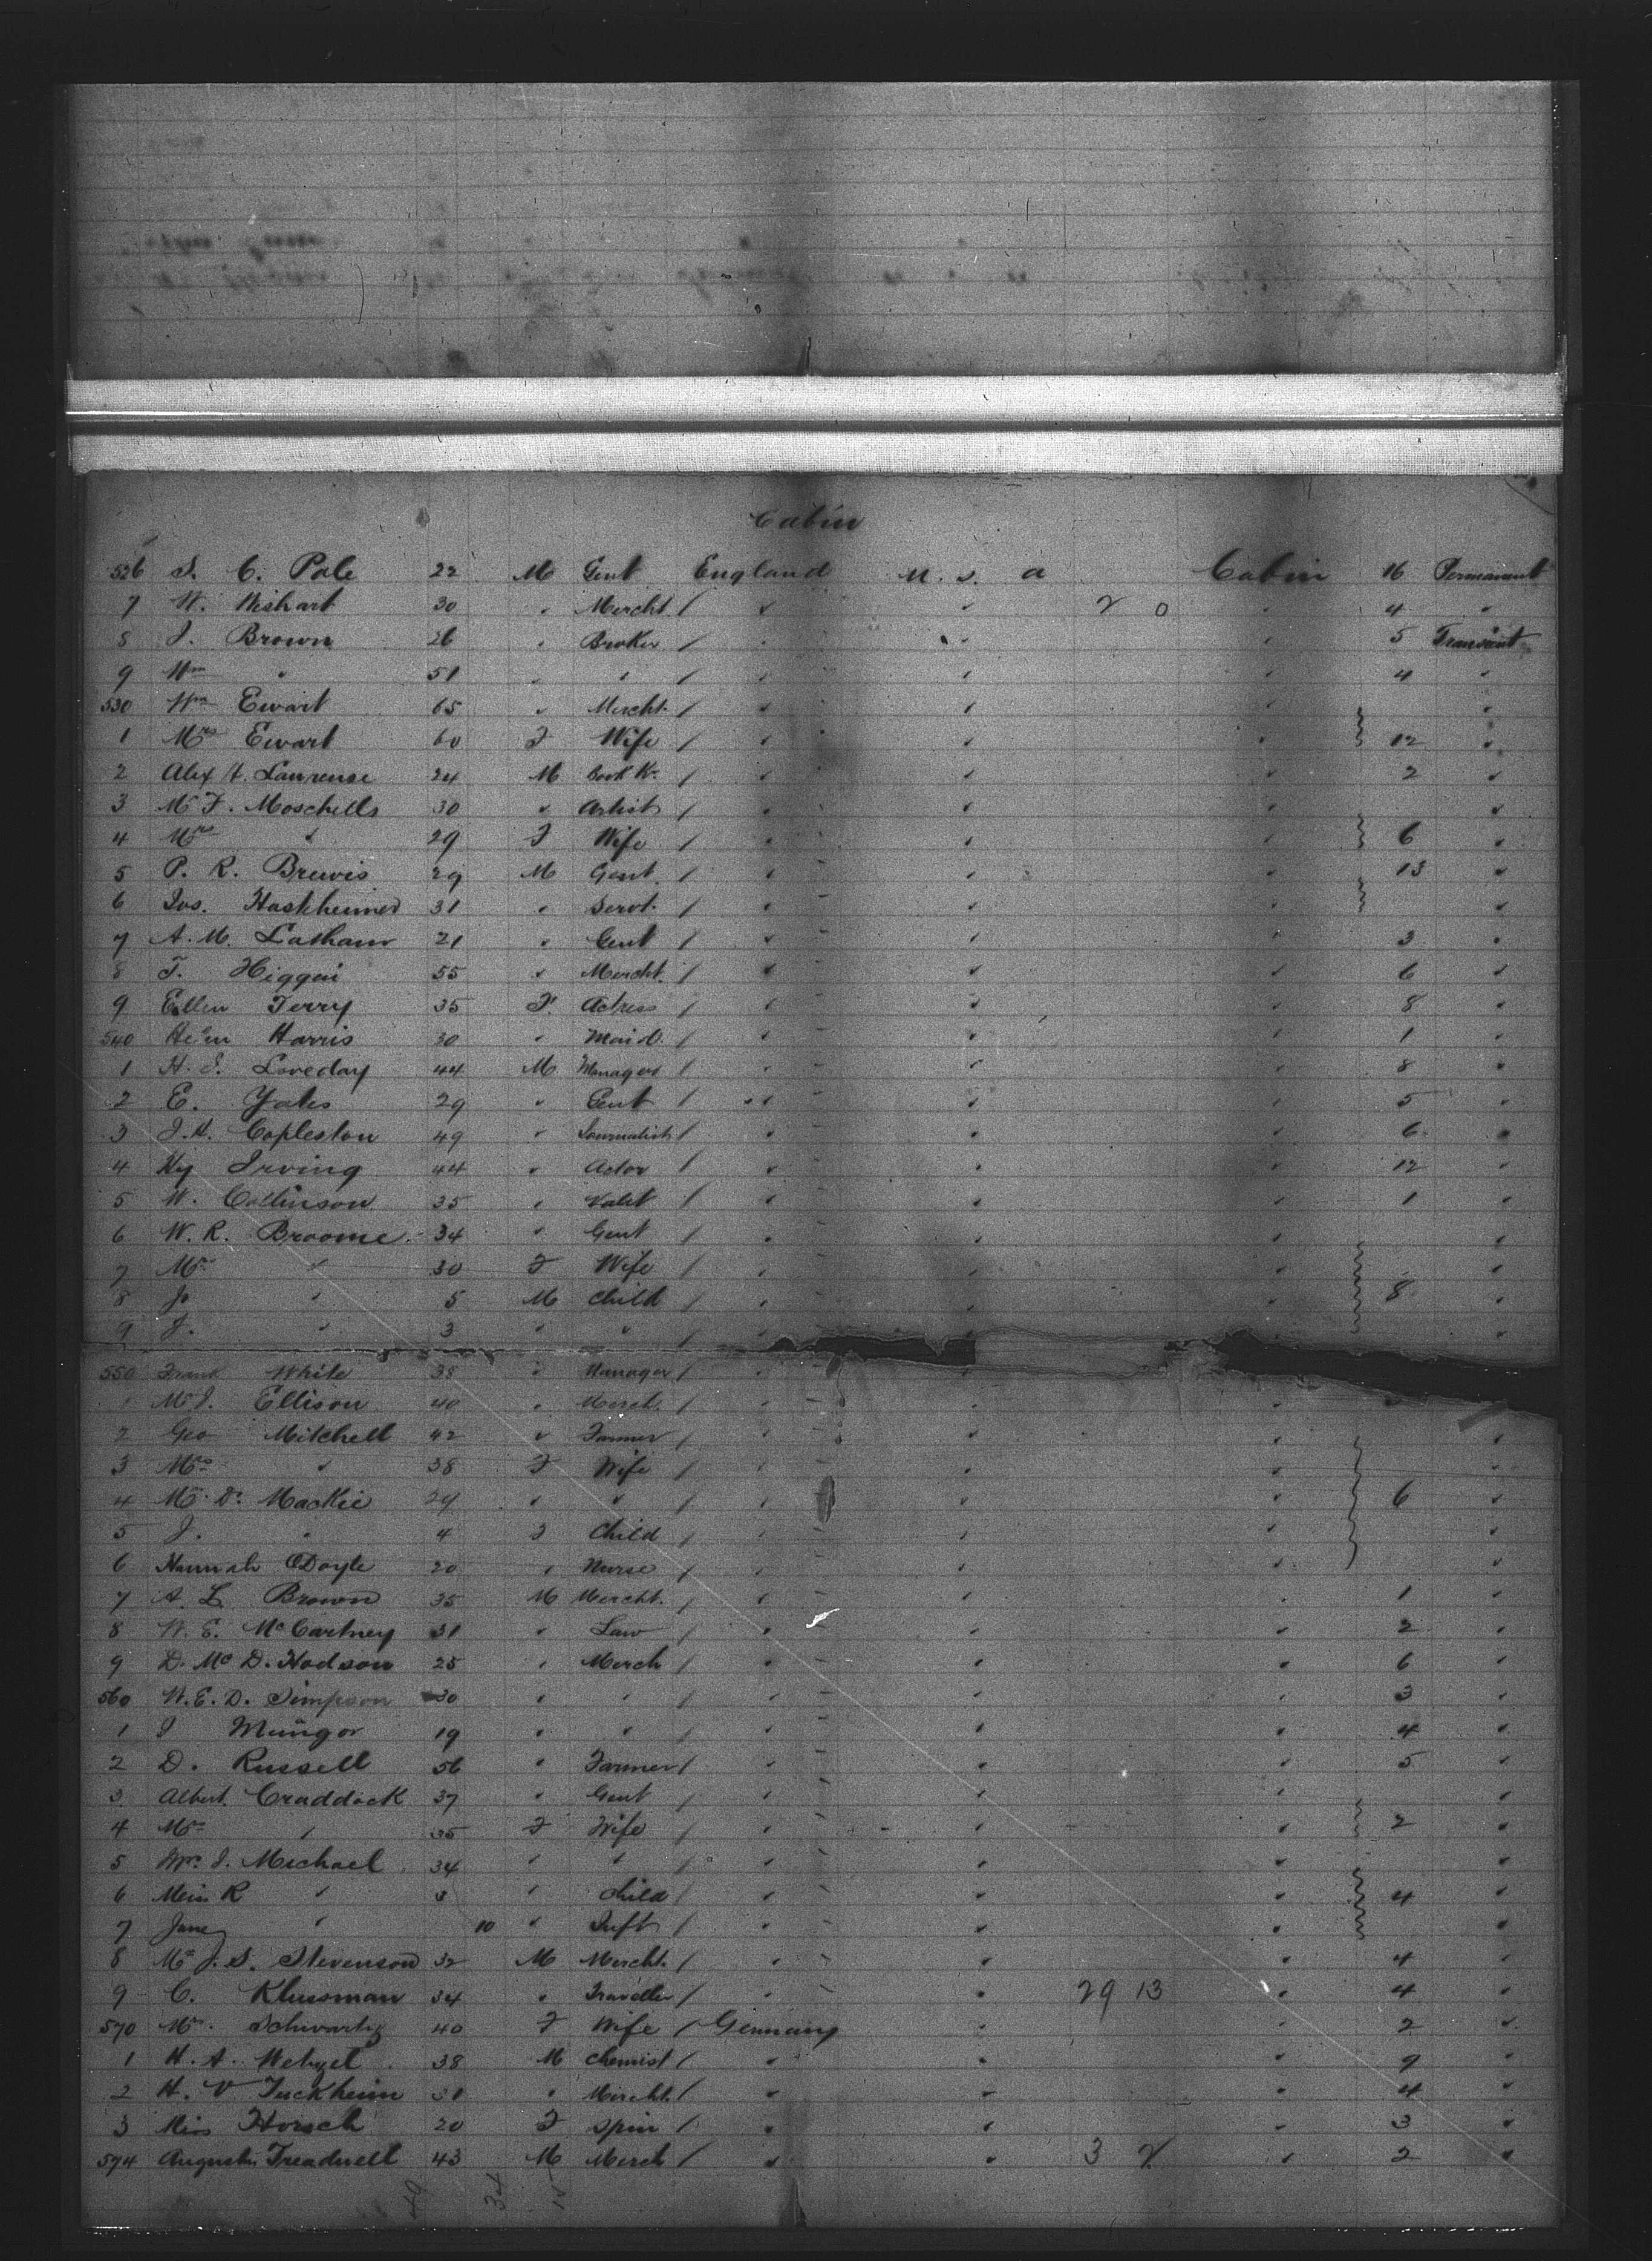 Cabin
526 S. C. Pole 22 M Gent England U. S. a Cabin 16 Permanant
7 W. Wishart 30 " Mercht. / " " 2 0 " 4 "
8 J. Brown 26 " Broker / " " " 5 Transient
9 Wm " 51 " " / " " " 4 "
530 Wm Ewart 65 " Mercht. / " " " "
1 Mrs Ewart 60 F Wife / " " " 12 "
2 Alex H. Laurense 24 M Book Kr. / " " " 2 "
3 Mr F. Moschells 30 " Artist / " " " "
4 Mrs " 29 F Wife / " " " 6 "
5 P. R. Brewis 29 M Gent. / " " " 13 "
6 Jos. 31 " Servt. / " " " "
7 A. M. Latham 21 " Gent / " " " 3 "
8 T. Higgin 55 " Mercht. / " " " 6 "
9 Ellen Terry 35 F. Actress / " " " 8 "
540 Helen Harris 30 " Maid. / " " " 1 "
1 H. J. Loveday 44 M Manager / " " " 8 "
2 E. Yates 29 " Gent / " " " 5 "
3 J. H. Copleston 49 " Journalist / " " " 6 "
4 Hy Irving 44 " Actor / " " " 12 "
5 W. Collinson 35 " Valet / " " " 1 "
6 W. R. Broome 34 " Gent / " " " "
7 Mrs " 30 F Wife / " " " "
8 Jo " 5 M Child / " " " 8 "
9 J. " 3 " " / " "
550 Frank White 38 " Manager / "
1 Mr J. Ellison 40 " Merch. / " " "
2 Geo Mitchell 42 " Farmer / " " " "
3 Mrs " 38 F Wife / " " " "
4 Mrs Dr Mackie 29 " " / " " " 6 "
5 J. " 4 F Child / " " " "
6 Hannah ODoyle 20 " Nurse / " " " "
7 A. L. Brown 35 M Mercht. / " " " 1 "
8 W. E. McCartney 31 " Law / " " 2 "
9 D. Mc D. Hodson 25 " Merch / " " " 6 "
560 W. E. D. Simpson 30 " " / " " " 3 "
1 J Mungor 19 " " / " " " 4 "
2 D. Russell 56 " Farmer / " " " 5 "
3. Albert. Craddock 37 " Gent / " " " "
4 Mrs " 35 F Wife / " " " 2 "
5 Mrs. J. Michael 34 " " / " " " "
6 Miss R " 3 " Child / " " " 4 "
7 Jane " 10 " Inft / " " " "
8 Mr J. S. Stevenson 32 M Mercht. / " " " 4 "
9 C. Klussman 34 " Traveller / " 29 13 " 4 "
570 Mrs. Schwartz 40 F Wife / Germany " " 2 "
1 H. A. Wetzel 38 M Chemist / " " " 9 "
2 H. V Tuckheim 31 " Mercht. / " " " 4 "
3 Miss Horsch 20 F Spin / " " " 3 "
574 August Treadwell 43 M Merch / " " 3 2 " 2 "
49 34 15